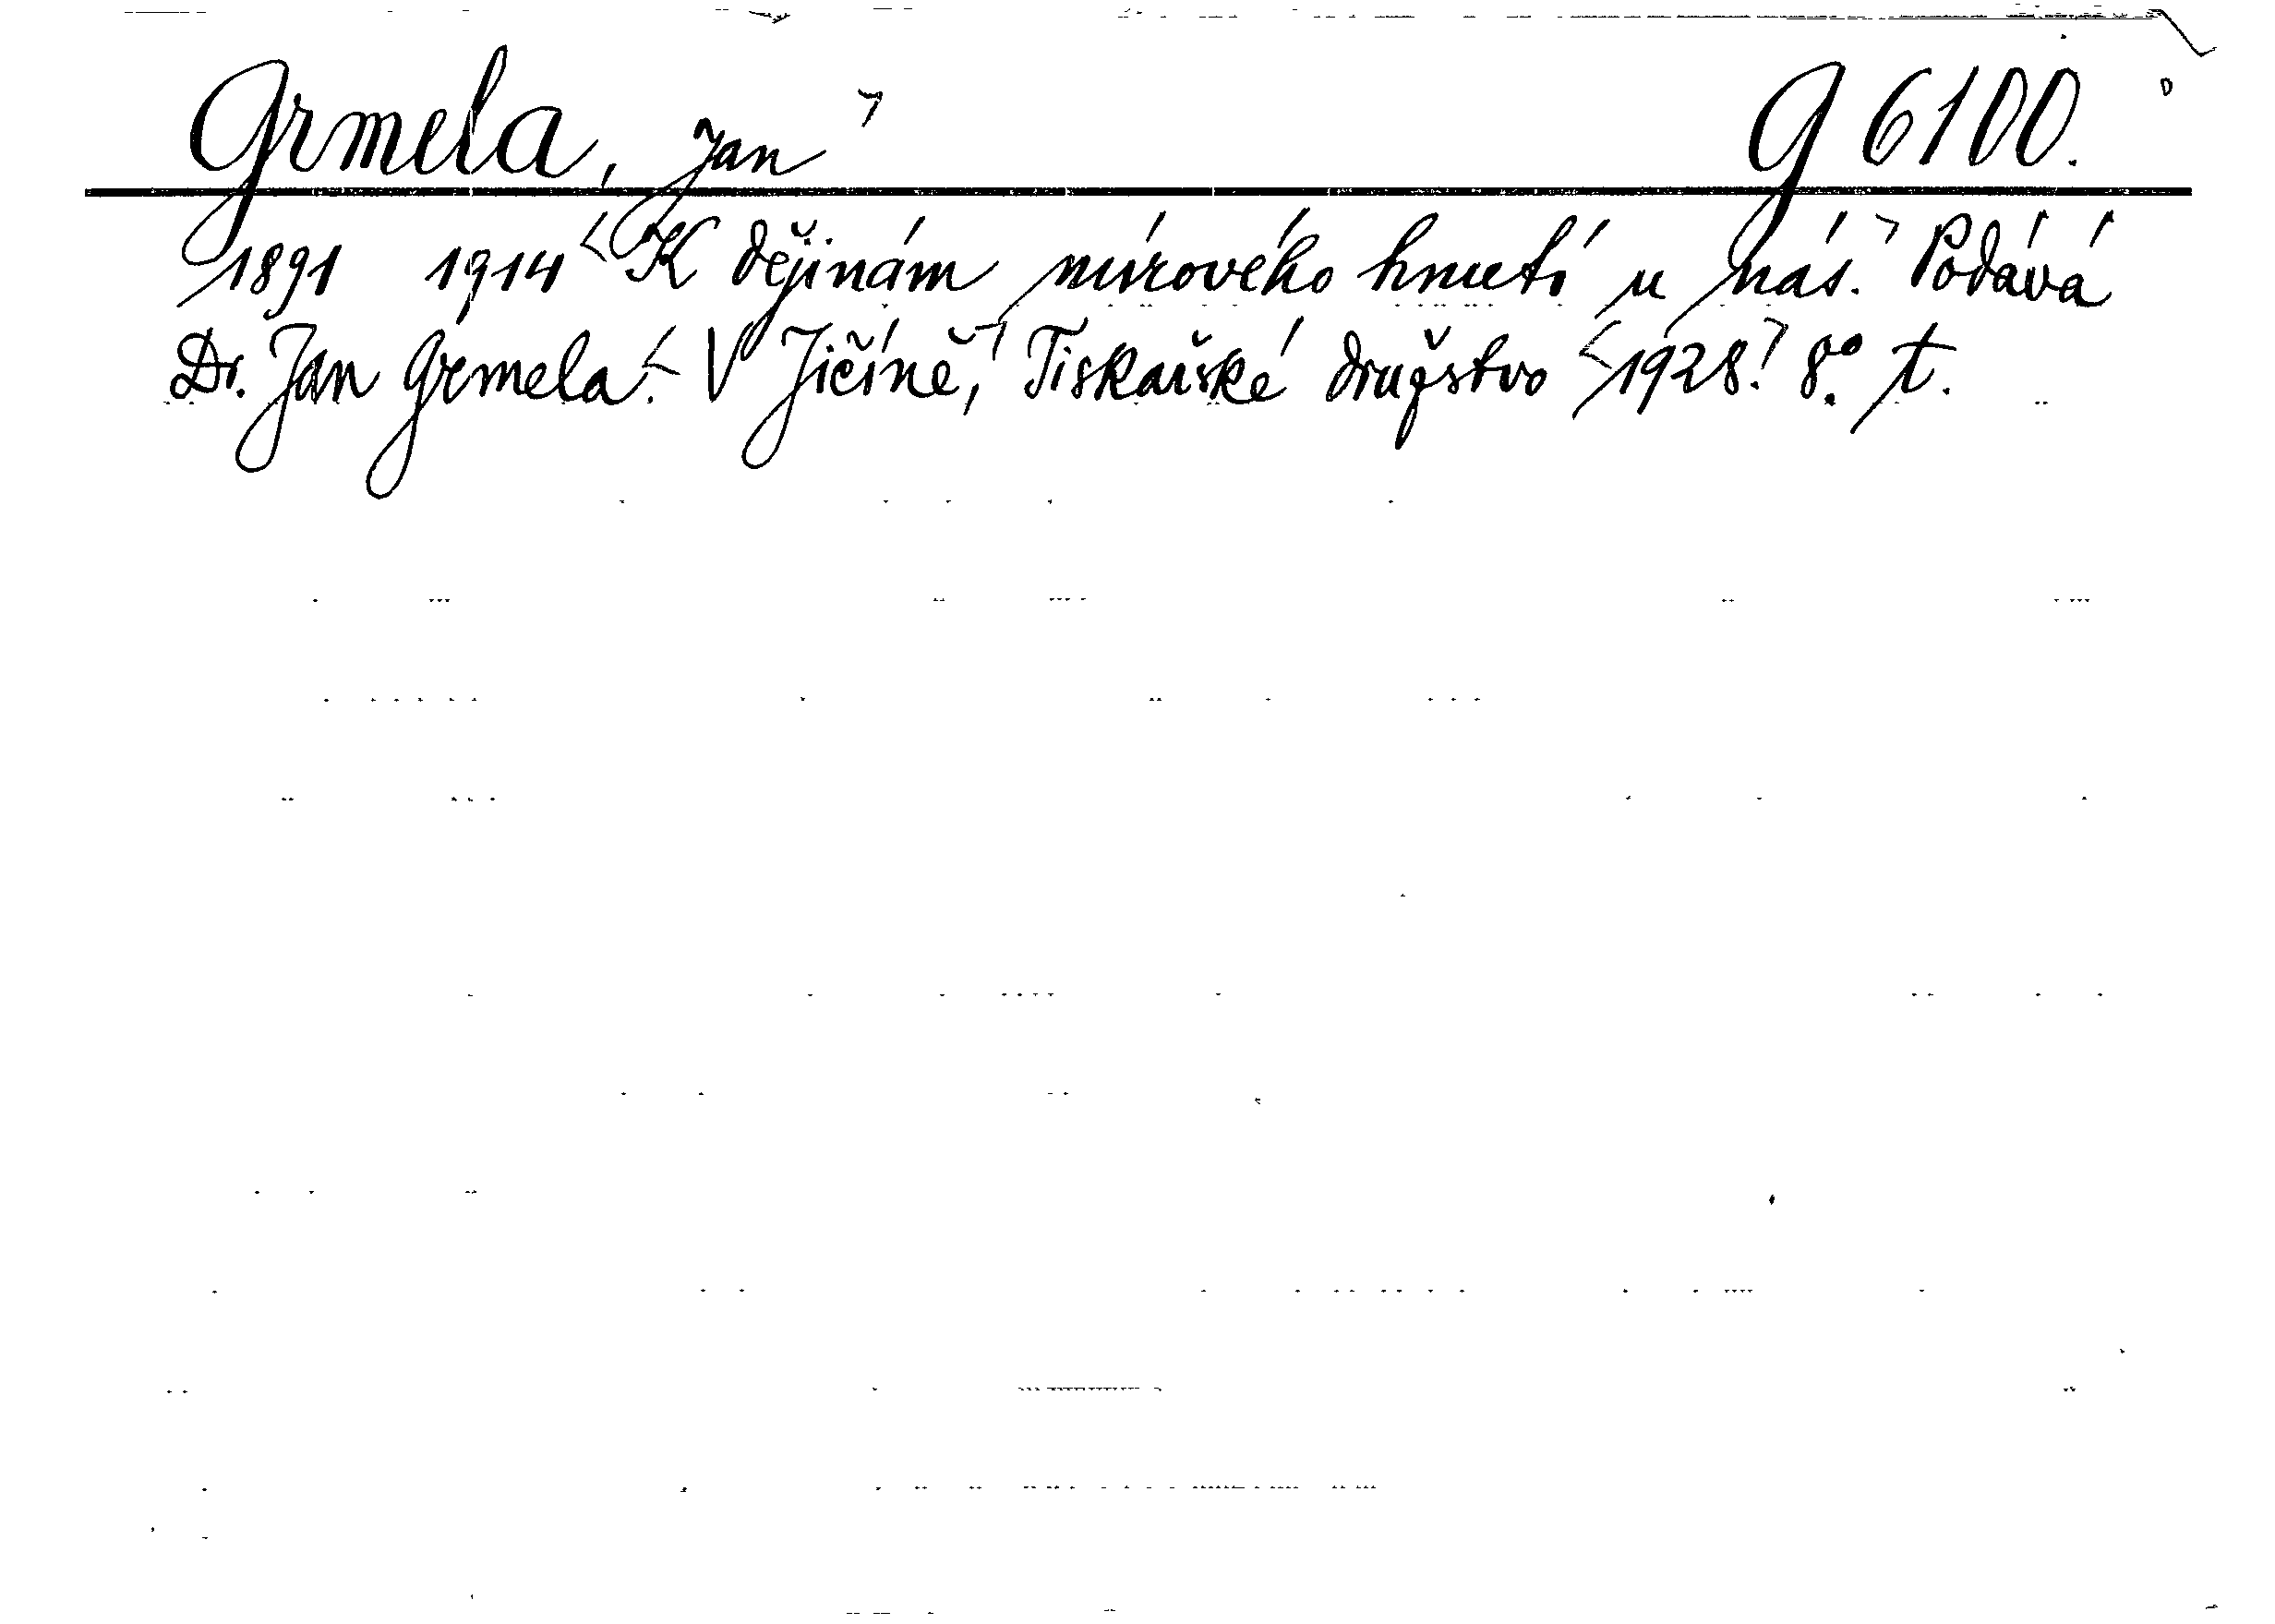 Grmela, Jan G 6100.
1891 1914 K dějinám mírového hnutí u nás. Podává
Dr. Jan Grmela. V Jičíně, Tiskařské družstvo 1928. 8° t.